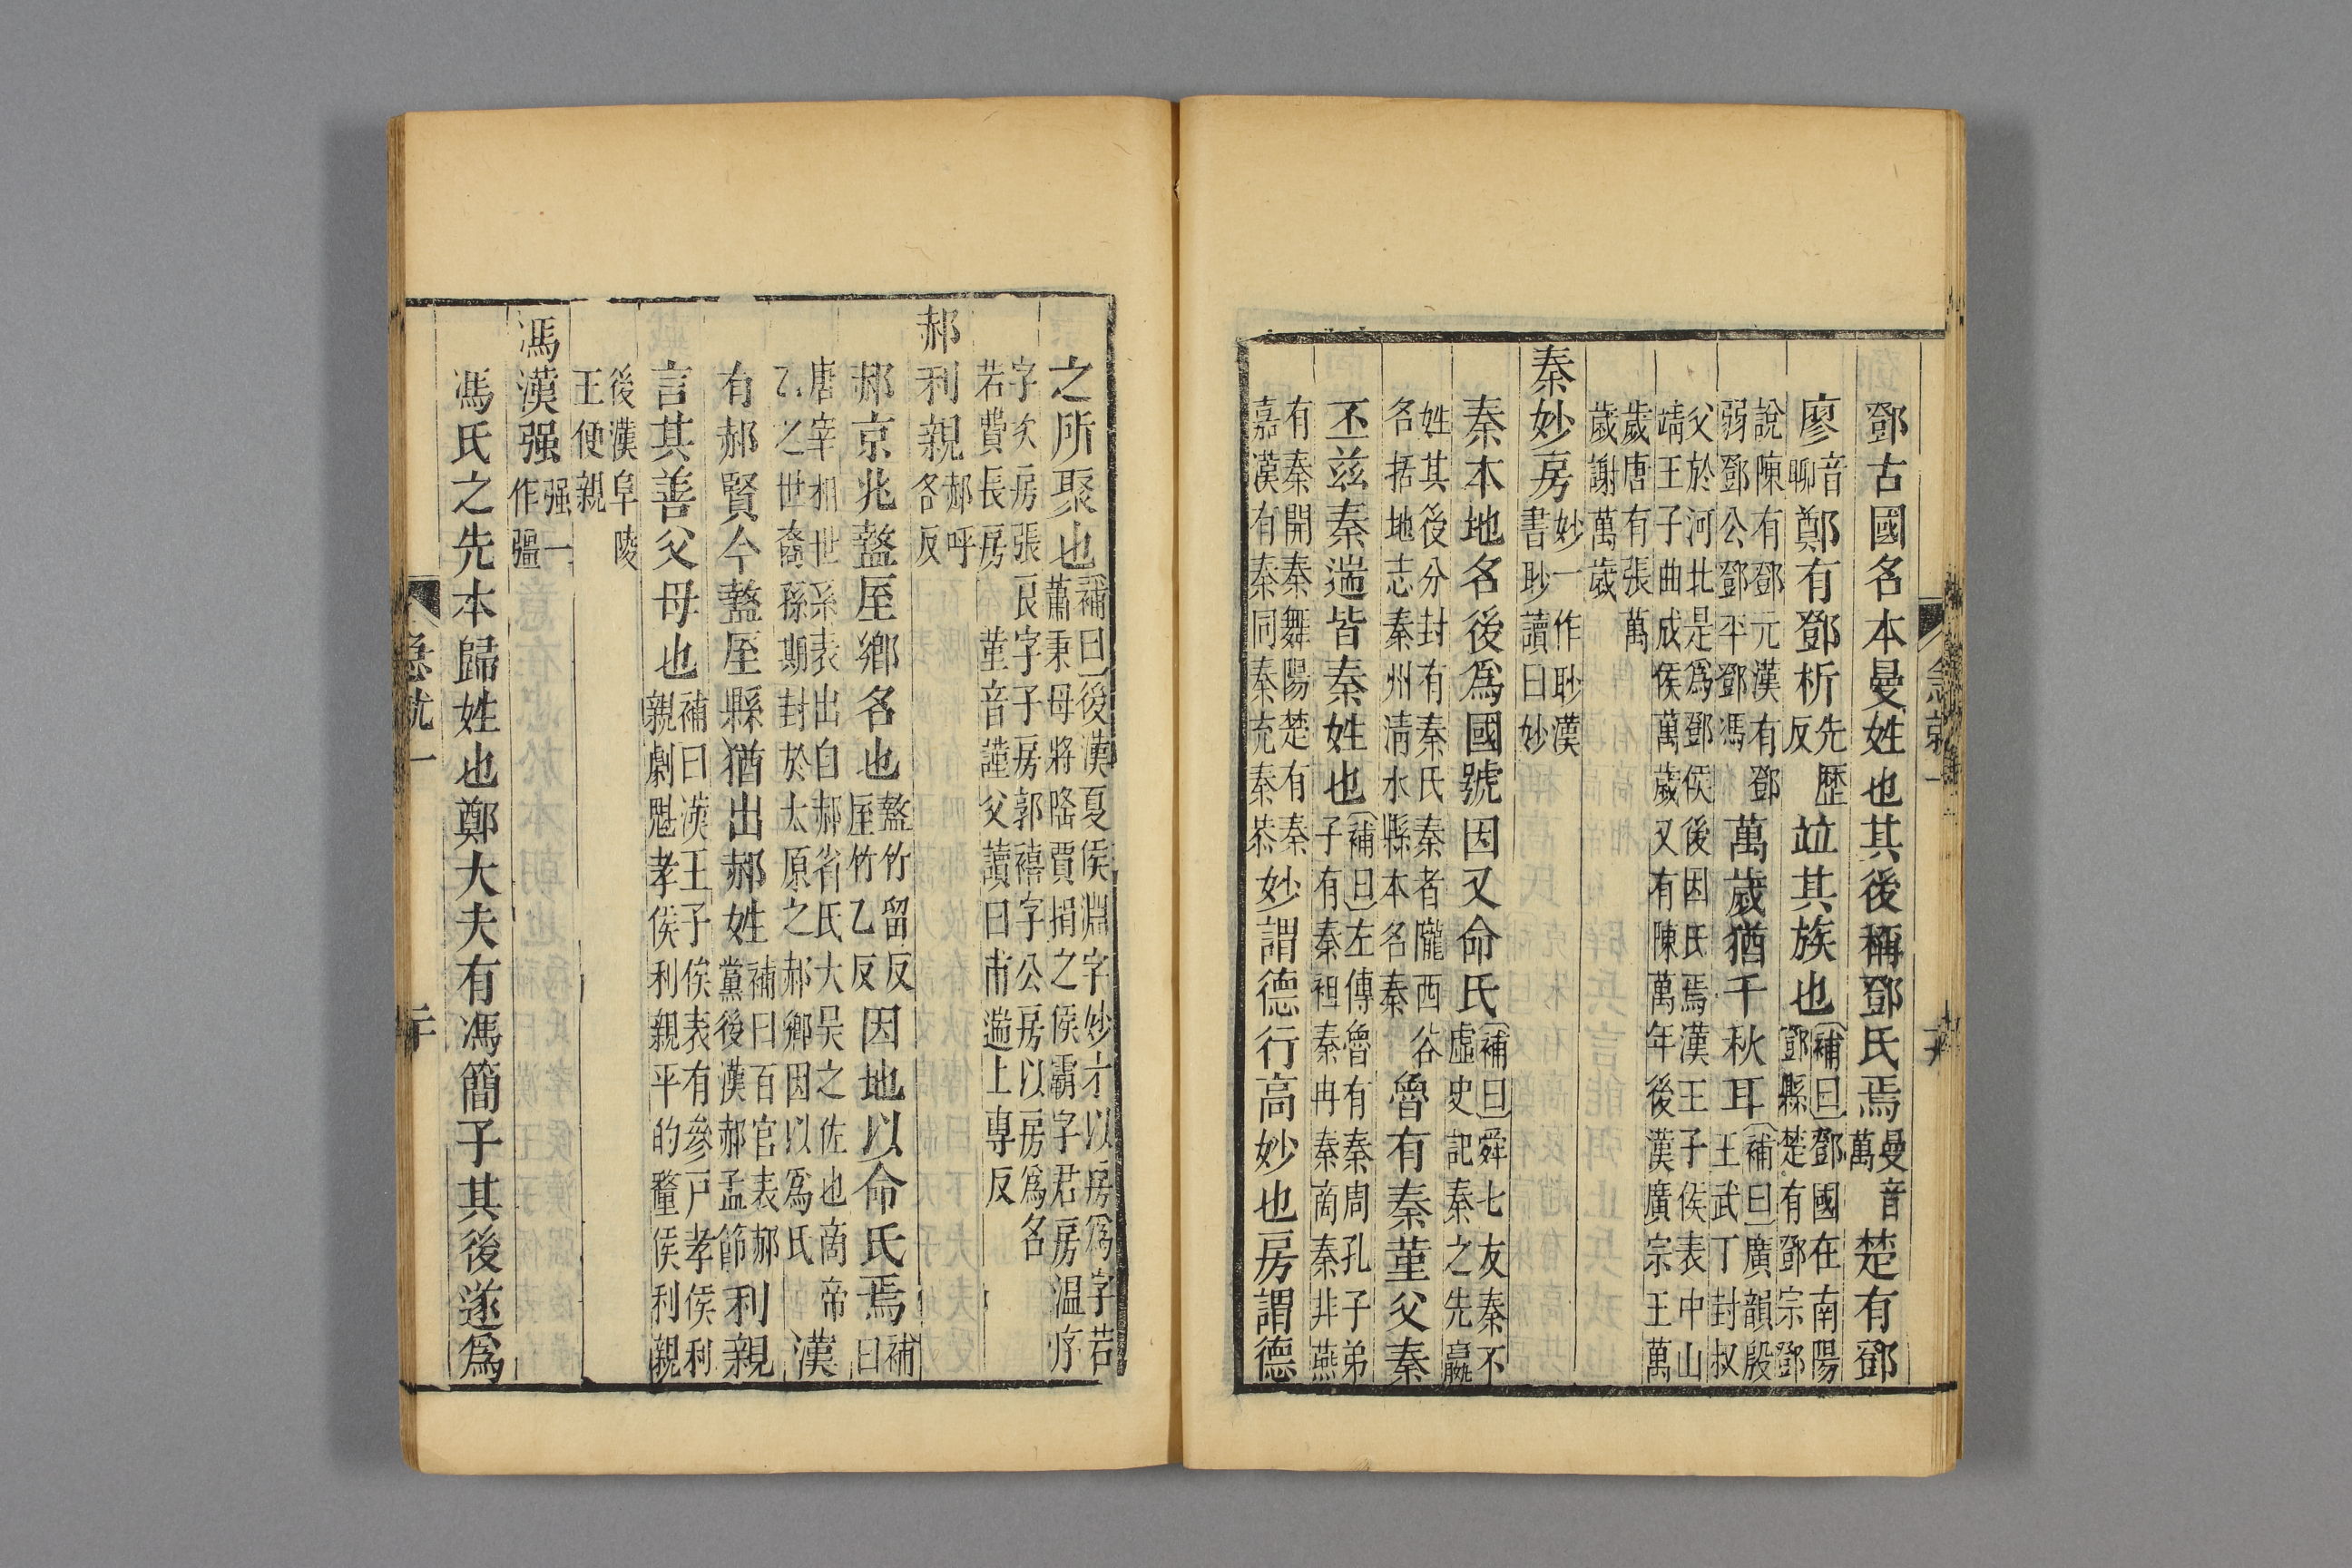 急就一 十九
鄧古國名本曼姓也其後稱鄧氏焉曼音萬楚有鄧
廖音聊鄭有鄧析先歷反竝其族也補曰鄧國在南陽鄧縣楚有鄧宗鄧
說陳有鄧元漢有鄧弱鄧公鄧平鄧馮萬歲猶千秋耳補曰廣韻殷王武丁封叔
父於河北是爲鄧侯後因氏焉漢王子侯表中山靖王子曲成侯萬歲又有陳萬年後漢廣宗王萬
歲唐有張萬歲謝萬歲
秦妙房妙一作眇漢書眇讀曰妙
秦本地名後爲國號因又命氏補曰舜七友秦不虛史記秦之先嬴
姓其後分封有秦氏秦者隴西谷名括地志秦州清水縣本名秦魯有秦堇父秦
丕茲秦遄皆秦姓也補曰左傳魯有秦周孔子弟子有秦祖秦冉秦商秦非燕
有秦開秦舞陽楚有秦嘉漢有秦同秦充秦恭妙謂德行高妙也房謂德
之所聚也補曰後漢夏侯淵字妙才以房爲字若蕭秉母將隆賈捐之侯霸字君房温疥
字矦房張良字子房郭禧字公房以房爲名若費長房堇音謹父讀曰甫遄上專反
郝利親郝呼各反
郝京兆盩厔鄉名也盩竹留反厔竹乙反因地以命氏焉補曰
唐宰相世系表出自郝省氏大昊之佐也商帝乙之世裔孫期封於太原之郝鄉因以爲氏漢
有郝賢今盩厔縣猶出郝姓補曰百官表郝黨後漢郝孟節利親
言其善父母也補曰漢王子侯表有參戶孝侯利親劇魁孝侯利親平的釐侯利親
後漢阜陵王便親
馮漢强强一作彊
馮氏之先本歸姓也鄭大夫有馮簡子其後遂爲
急就一 二十